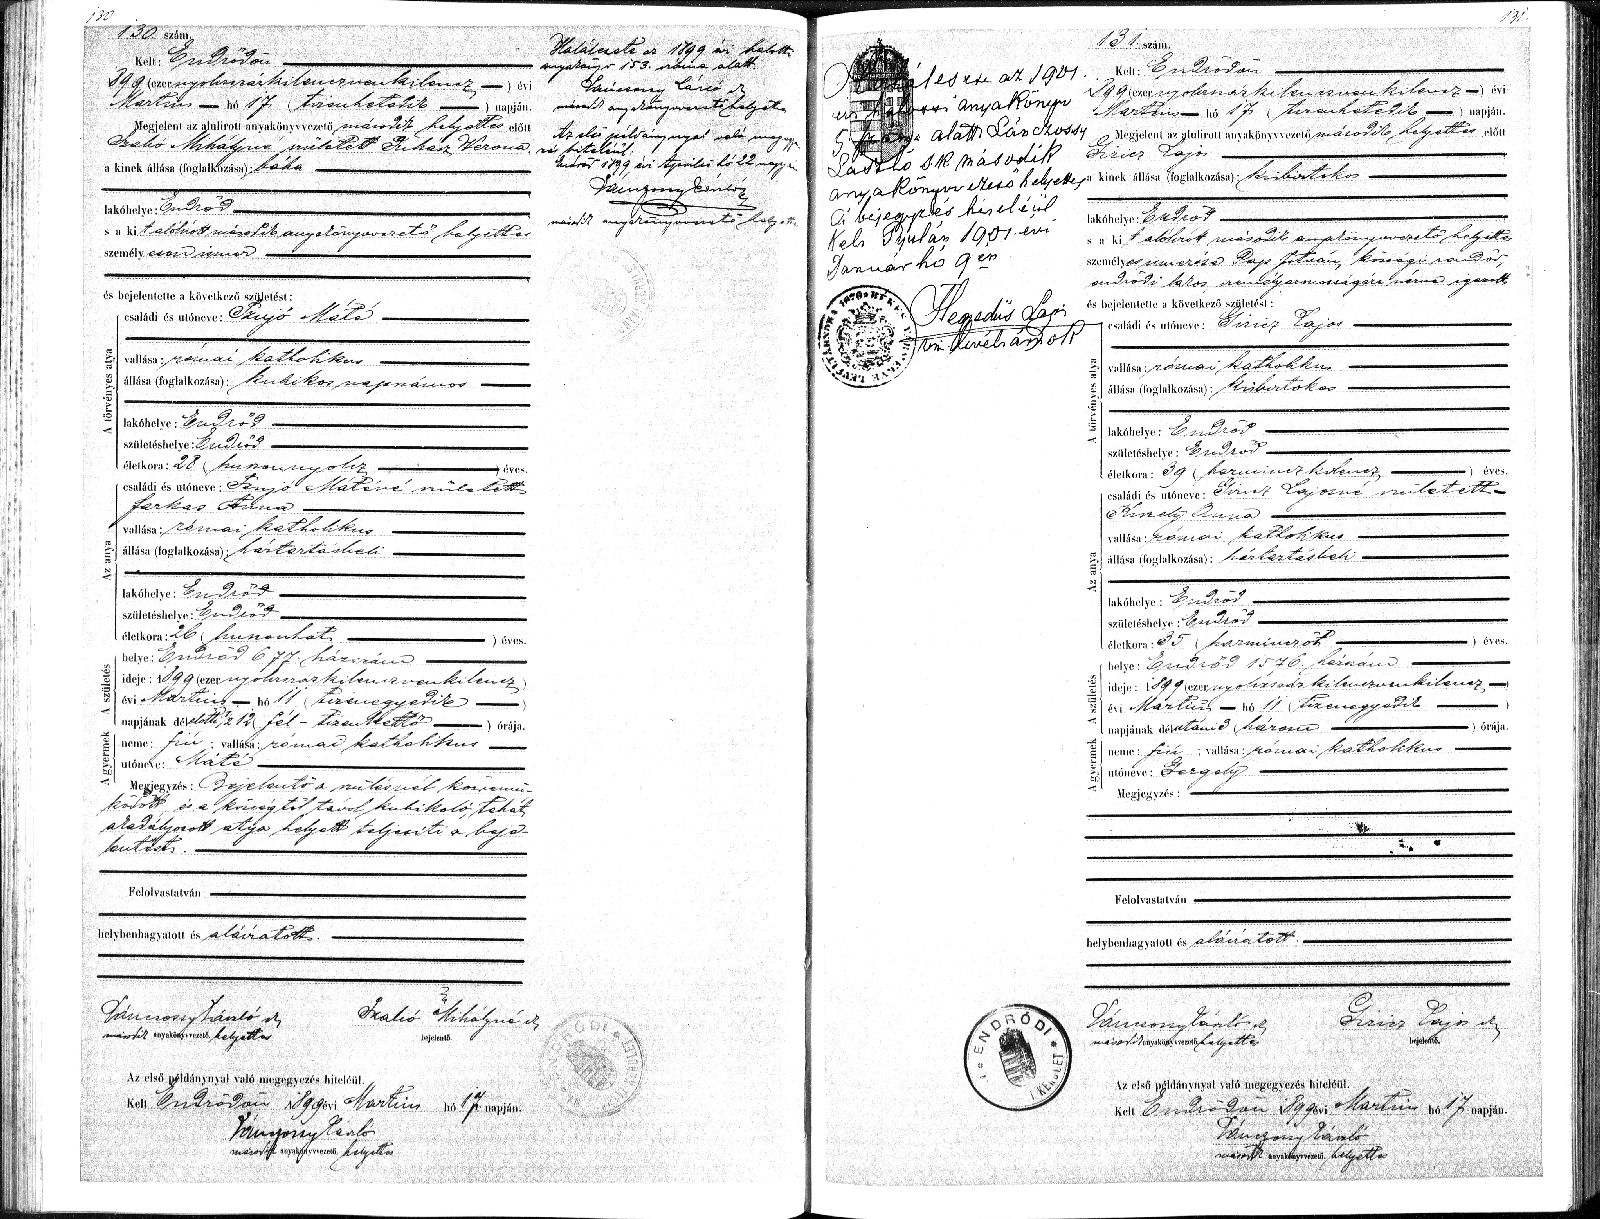 130
130. szám.
Kelt: Endrődön
899 (ezernyolcszázkilenczvenkilencz) évi
Martius hó 17 (tizenhetedik) napján.
Megjelent az alulirott anyakönyvvezető második helyettes előtt
Szabó Mihályné született Juhász Verona
a kinek állása (foglalkozása): bába
lakóhelye: Endrőd
s a kit alulirott második anyakönyvvezető helyettes
személyesen ismer
és bejelentette a következő születést:
A törvényes atya
családi és utóneve: Szujó Máté
vallása: római katholikus
állása (foglalkozása): kubikos napszámos
lakóhelye: Endrőd
születéshelye: Endrőd
életkora: 28 (huszonnyolcz) éves.
Az anya
családi és utóneve: Szujó Máténé született
Farkas Anna
vallása: római katholikus
állása (foglalkozása): háztartásbeli
lakóhelye: Endrőd
születéshelye: Endrőd
életkora: 26 (huszonhat) éves.
A születés
helye: Endrőd 677. házszám
ideje: 1899 (ezernyolcszázkilenczvenkilencz)
évi Martius hó 11 (tizenegyedik)
napjának délelőtti ½12 (fél-tizenkettő) órája.
A gyermek
neme: fiú; vallása: római katholikus
utóneve: Máté
Megjegyzés: Bejelentő a szülésnél közremü-
ködött és a községtől távol kubikoló, tehát
akadályozott atya helyett teljesiti a beje-
lentést.
Felolvastatván
helybenhagyatott és aláiratott.
Vánczony László sk
második anyakönyvvezető helyettes
Szabó Mihályné sk
bejelentő.
Az első példánynyal való megegyezés hiteléül.
Kelt Endrődön 1899 évi Martius hó 17 napján.
Vánczony László
második anyakönyvvezető helyettes
Halálesete az 1899 évi halotti
anyakönyv 153. száma alatt.
Vánczony László sk
második anyakönyvvezető helyettes
Az első példánynyal való megegye-
zés hiteléül.
Endrőd 1899 évi Április hó 22 napján
Vánczony László
második anyakönyvvezető helyettes
131.
az 1901.
évi halotti anyakönyv
5 száma alatt
László sk. második
anyakönyvvezető helyettes
A bejegyzés hiteléül
Kelt Gyulán 1901. évi
Január hó 9 én
Hegedüs Lajos
levéltárnok
131. szám.
Kelt: Endrődön
899 (ezernyolcszázkilenczvenkilencz) évi
Martius hó 17 (tizenhetedik) napján.
Megjelent az alulirott anyakönyvvezető második helyettes előtt
Giricz Lajos
a kinek állása (foglalkozása): kisbirtokos
lakóhelye: Endrőd
s a kit alulirott második anyakönyvvezető helyettes
személyes ismerése Pap István, községi rendőr,
endrődi lakos személyazonosságára nézve igazolt
és bejelentette a következő születést:
A törvényes atya
családi és utóneve: Giricz Lajos
vallása: római katholikus
állása (foglalkozása): kisbirtokos
lakóhelye: Endrőd
születéshelye: Endrőd
életkora: 39 (harminczkilencz) éves.
Az anya
családi és utóneve: Giricz Lajosné született
Kinzely Anna
vallása: római katholikus
állása (foglalkozása): háztartásbeli
lakóhelye: Endrőd
születéshelye: Endrőd
életkora: 35 (harminczöt) éves.
A születés
helye: Endrőd 1576. házszám
ideje: 1899 (ezernyolcszázkilenczvenkilencz)
évi Martius hó 11 (tizenegyedik)
napjának délutáni 3 (három) órája.
A gyermek
neme: fiú; vallása: római katholikus
utóneve: Gergely
Megjegyzés:
Felolvastatván
helybenhagyatott és aláiratott.
Vánczony László sk
második anyakönyvvezető helyettes
Giricz Lajos sk
bejelentő.
ENDRŐDI
KERÜLET
Az első példánynyal való megegyezés hiteléül.
Kelt Endrődön 1899 évi Martius hó 17 napján.
Vánczony László
második anyakönyvvezető helyettes